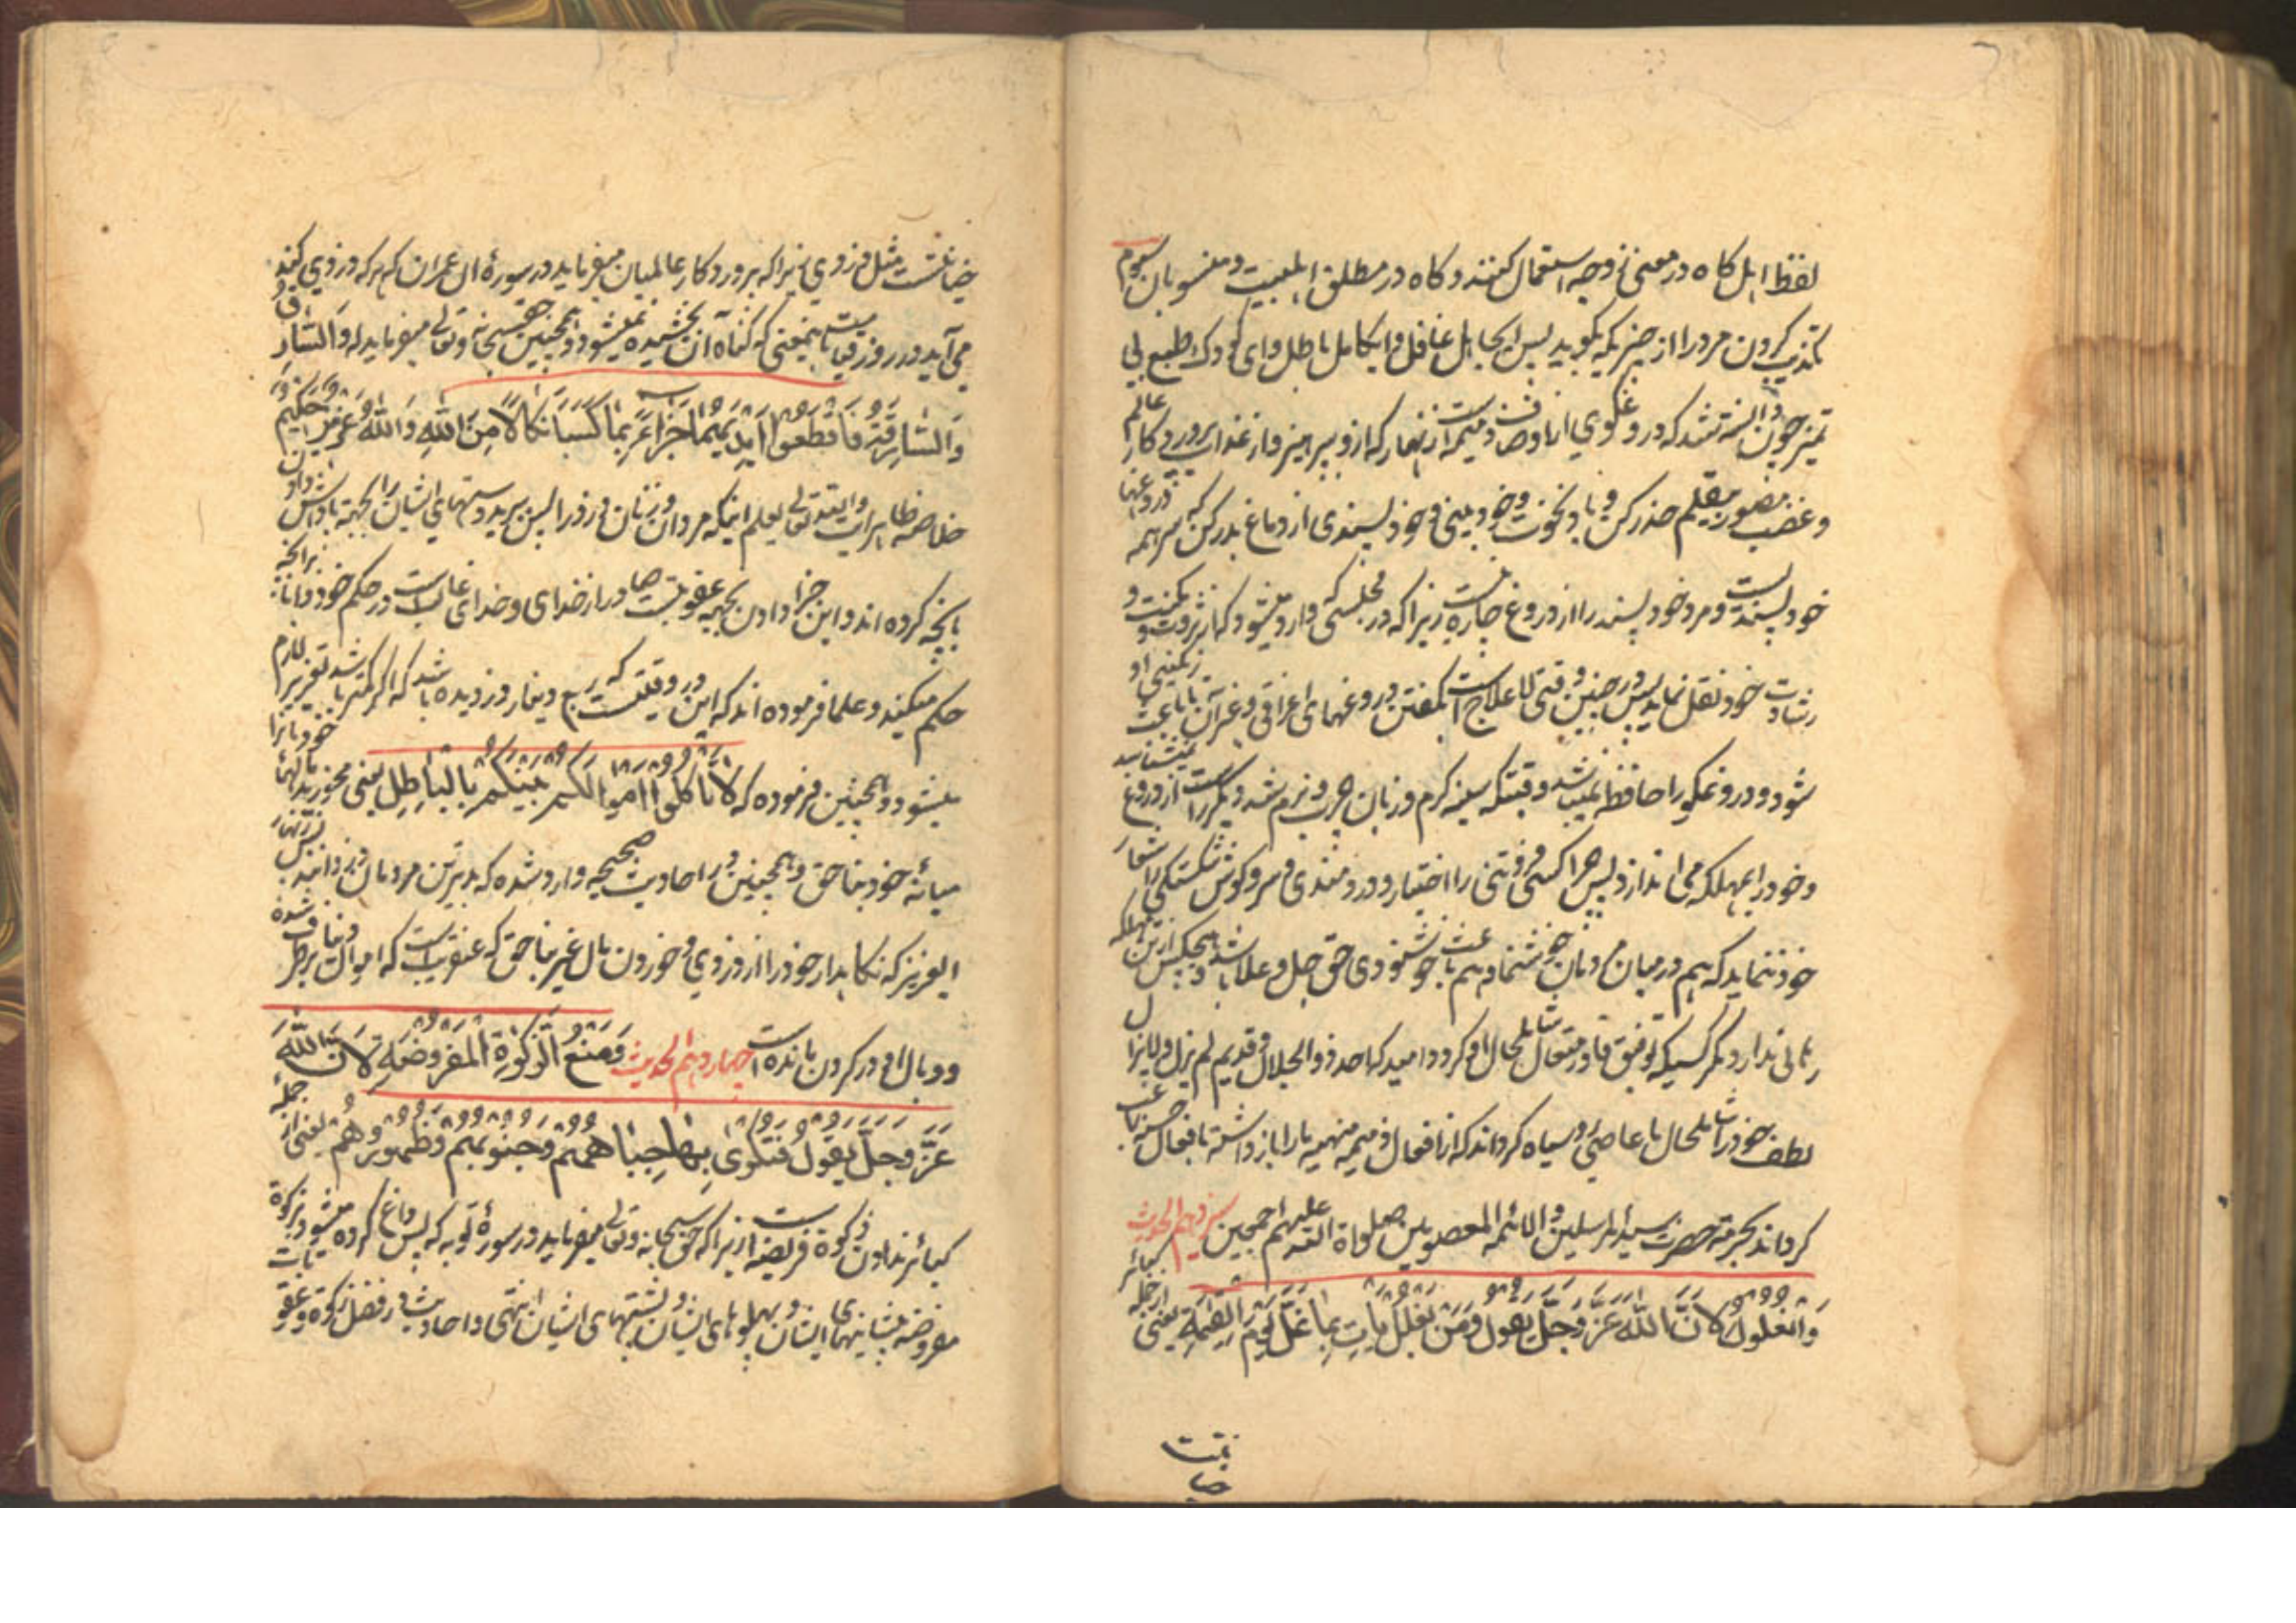 لفظ اهل گاه در معنی زوجه استعمال کنند و گاه در مطلق اهلبیت و منسوبان سیوم
تکذیب کردن مرد را از چیزیکه بگوید پس ایجاهل غافل و ایکامل باطل و ای کودک طبع بی
تمیز چون دانسته شد که دروغگوی از اوصاف ذمیمه است زنهار که ازو بپرهیز و از عذاب پروردکار عالم
و غضب منصور منتقم حذر کن و باد نخوت و خودبینی و خودپسندی از دماغ بدر کن که سر همه دروغها
خودپسندیست و مرد خودپسند را از دروغ چاره نیست زیرا که در مجلسی که وارد میشود که از ثروت و مکنت و
رشادت خود نقل نماید پس در چنین وقتی لاعلاج است بگفتن دروغهای اغراقی و غیر آن تا باعث رنگینی او
شود و دروغگو را حافظه نمیباشد وقتیکه سینه گرم و زبان چرب و نرم شد دیگر راست از دروغ نمیشناسد
و خود را بمهلکه می اندازد پس چرا کسی فروتنی را اختیار و دردمندی و سرو گوش شکستگی را شعار
خود ننماید که هم در میان مردمان خوشنما و هم باعث خوشنودی حق جل و علا باشد و هیچکس ازین مهلکه
رهائی ندارد مگر کسیکه توفیق قادر متعال شامل حال او گردد امید که احد ذو الجلال و قدیم لم یزل و لا یزال
لطف خود را شامل حال ما عاصی روسیاه گرداند که از افعال ذمیمه منهیه ما را باز داشته بافعال حسنه راغب
گرداند بحرمة حضرت سید المرسلین و الائمه المعصومین صلواة الله علیهم اجمعین سیزدهم الحدیث
وَالغلولُ لِانَّ اللّٰهَ عَزَّ وَجَلَّ یَقولُ وَمَن یَغلُل یَأتِ بِما غَلَّ یَومَ القِیٰمَةِ یعنی از جمله کبائر
خیانت
خیانتست مثل دزدی زیرا که پروردکار عالمیان میفرماید در سورهٔ ال عمران که هر که دزدی کند
می آید در روز قیامت باینمعنی که گناه آن بخشیده نمیشود و همچنین حق سبحانه و تعالی میفرماید که وَالسّارِقُ
وَالسّارِقَةُ فَاقطَعوا اَیدِیَهُما جَزاءً بِما کَسَبا نَکالاً مِنَ اللهِ وَاللهُ عَزیزٌ حَکیمٌ
خلاصه ظاهر ایت والله تعالی یعلم اینکه مردان و زنان دزد را پس ببرید دستهای ایشان را بجهته پاداش دادن
بانچه کرده اند و این جزا دادن بجهة عقوبتست صادر از خدای و خدای غالبست در حکم خود دانا بانچه
حکم میکند و علما فرموده اند که این در وقتیست که ربع دینار دزدیده باشد که اگر کمتر باشد تعزیر لازم
میشود و همچنین فرموده که لا تَاکُلوا اَموالَکُم بَینَکُم بِالباطِلِ یعنی مخورید مالهای خود را
میانهٔ خود بناحق و همچنین در احادیث صحیحه وارد شده که بدترین مردمان دزدانند پس زنهار
ایعزیز که نگاهدار خود را از دزدی و خوردن مال غیر بناحق که عنقریبست که اموال برطرف شده
و وبال او در گردن مانده است چهاردهم الحدیث وَمَنعُ الزَّکٰوةِ المَفروضَةِ لِاَنَّ اللّٰهَ
عَزَّ وَجَلَّ یَقولُ فَتُکویٰ بِها جِباهُهُم وَجُنوبُهُم وَظُهورُهُم یعنی از جمله
کبائر ندادن زکوة فریضه است زیرا که حق سبحانه و تعالی میفرماید در سورهٔ توبه که پس داغ کرده میشود بزکوة
مفروضه پیشانیهای ایشان و پهلوهای ایشان و پشتهای ایشان انتهی و احادیث در فضل زکوة و عقوبات